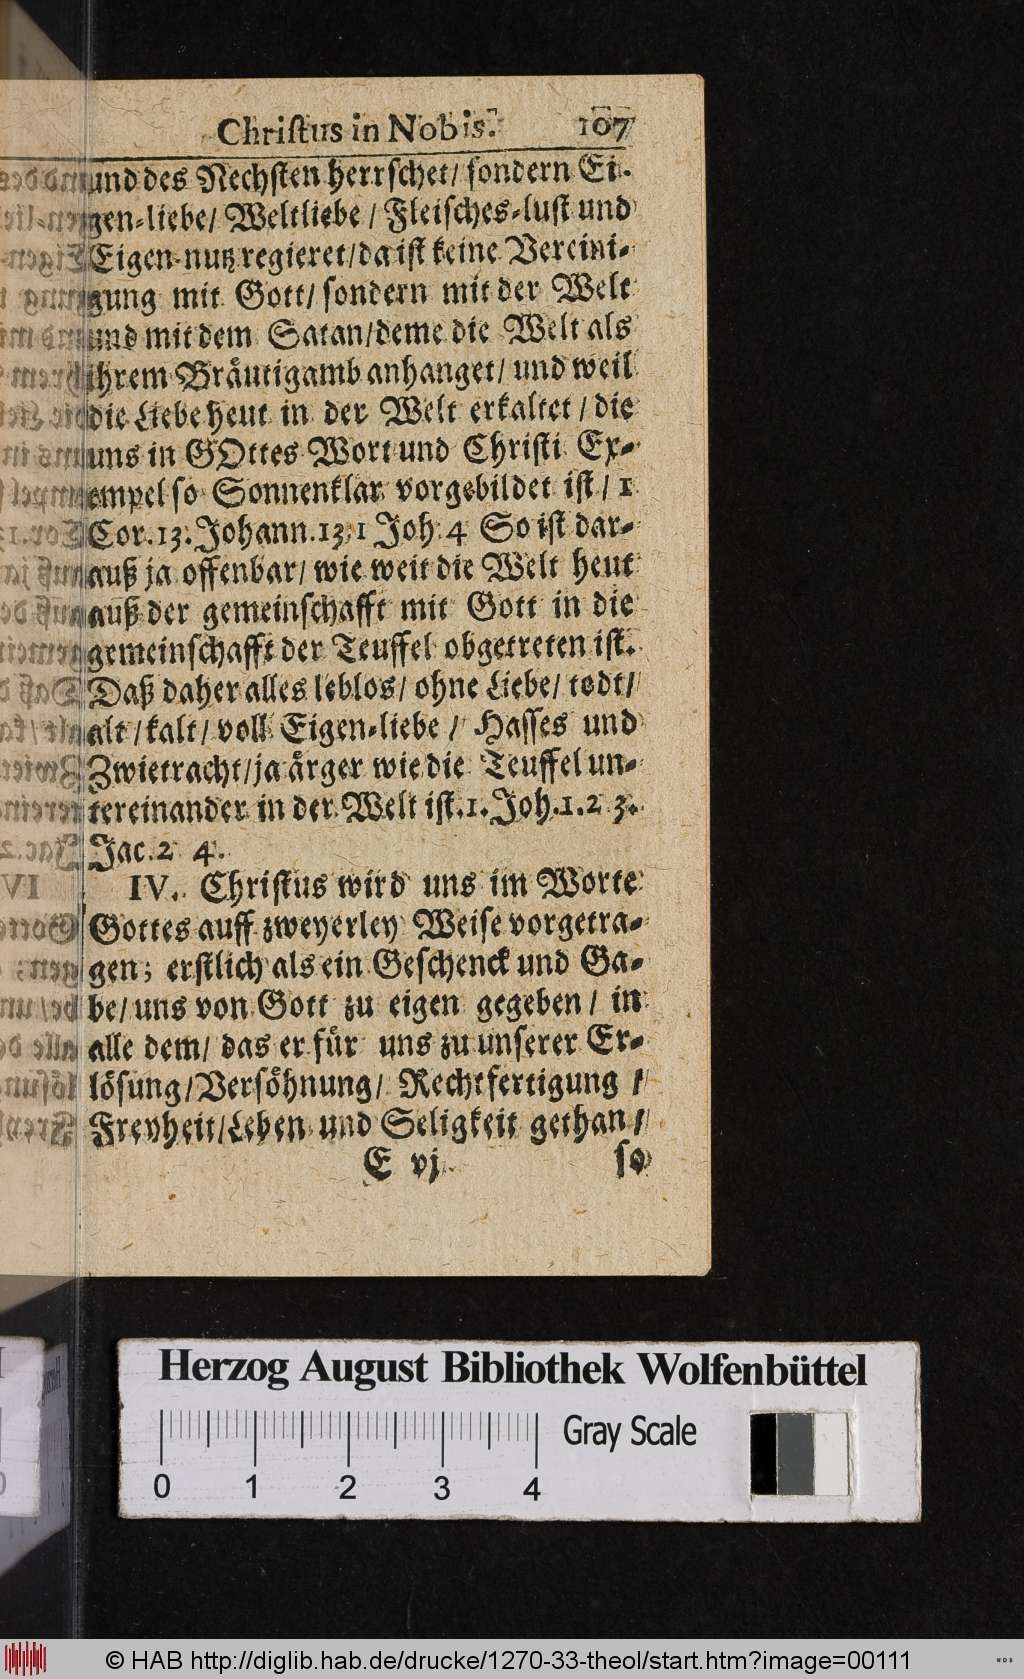 Christus in Nobis. 107
und des Nechsten herrschet/ sondern Ei-
gen-liebe/ Weltliebe / Fleisches-lust und
Eigen-nutz regieret/ da ist keine Vereini-
gung mit Gott/ sondern mit der Welt
und mit dem Satan/ deme die Welt als
ihrem Bräutigamb anhanget/ und weil
die Liebe heut in der Welt erkaltet / die
uns in GOttes Wort und Christi Ex-
empel so Sonnenklar vorgebildet ist / 1
Cor. 13. Johann. 13, 1 Joh. 4 So ist dar-
auß ja offenbar/ wie weit die Welt heut
auß der gemeinschafft mit Gott in die
gemeinschafft der Teuffel obgetreten ist.
Daß daher alles leblos/ ohne Liebe/ todt/
alt / kalt / voll Eigen-liebe / Hasses und
Zwietracht/ ja ärger wie die Teuffel un-
tereinander in der Welt ist. 1. Joh. 1. 2 3.
Jac. 2 4.
IV. Christus wird uns im Worte
Gottes auff zweyerley Weise vorgetra-
gen; erstlich als ein Geschenck und Ga-
be/ uns von Gott zu eigen gegeben / in
alle dem/ das er für uns zu unserer Er-
lösung/ Versöhnung/ Rechtfertigung /
Freyheit/ Leben und Seligkeit gethan /
E vj so
Herzog August Bibliothek Wolfenbüttel
Gray Scale
0 1 2 3 4
© HAB http://diglib.hab.de/drucke/1270-33-theol/start.htm?image=00111